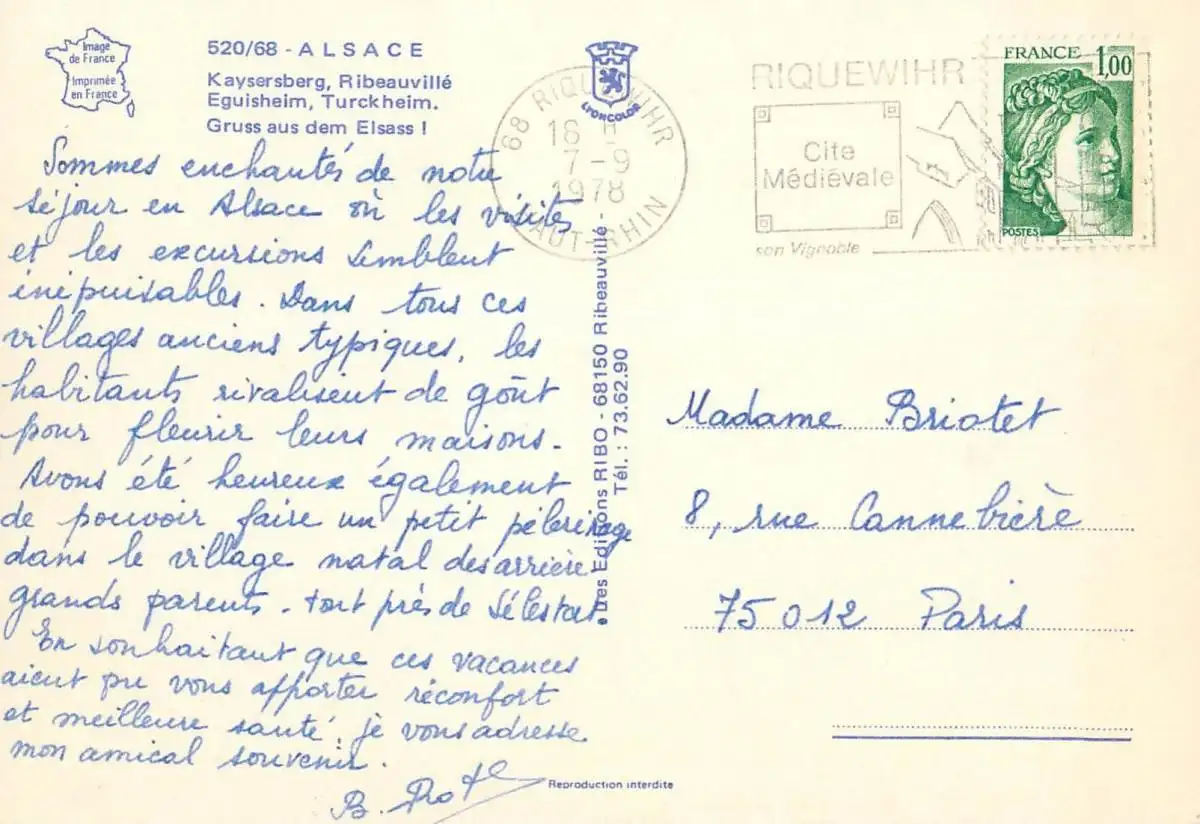 Image
de France
Imprimée
en France
520/68 - ALSACE
Kaysersberg, Ribeauvillé
Eguisheim, Turckheim.
Gruss aus dem Elsass !
LYONCOLOR
68 RIQUEWIHR
18 H
7 - 9
1978
HAUT-RHIN
RIQUEWIHR
Cite
Médiévale
son Vignoble
FRANCE 1,00
POSTES
Sommes enchantés de notre
séjour en Alsace où les visites
et les excursions semblent
inépuisables. Dans tous ces
villages anciens typiques, les
habitants rivalisent de goût
pour fleurir leurs maisons.
Avons été heureux également
de pouvoir faire un petit pèlerinage
dans le village natal des arrière
grands parents. tout près de Sélestat.
En souhaitant que ces vacances
aient pu vous apporter réconfort
et meilleure santé, je vous adresse
mon amical souvenir.
B.
Les Editions RIBO - 68150 Ribeauvillé -
Tél. : 73.62.90
Madame Briotet
8, rue Cannebière
75012 Paris
Reproduction interdite